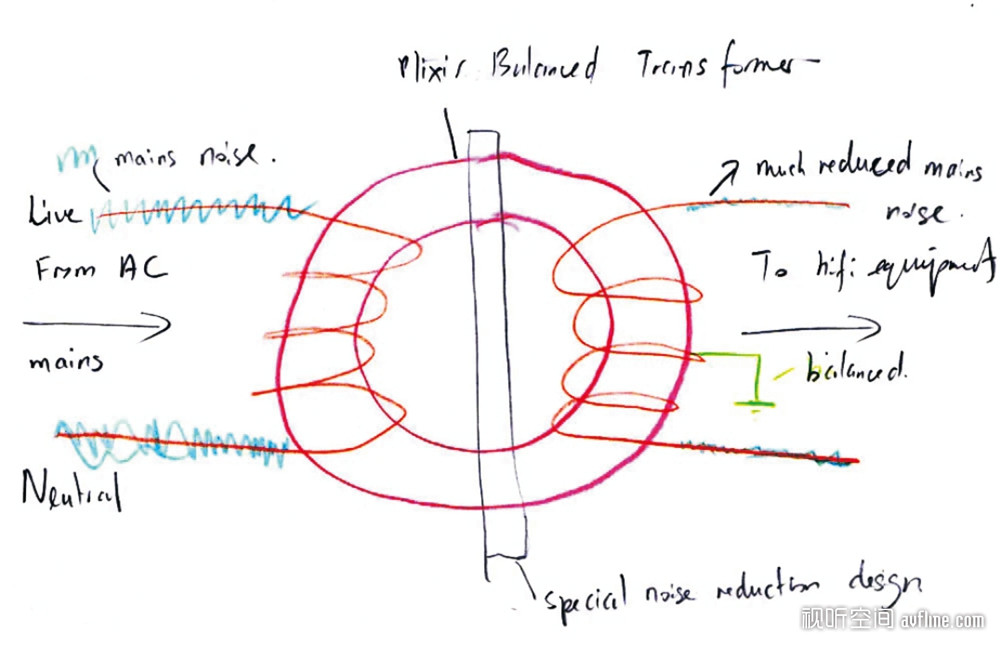 Plixir Balanced Transformer
mains noise.
Live
From AC
mains
Neutral
much reduced mains
noise.
To hifi equipment
balanced.
special noise reduction design
视听空间 avfline.com